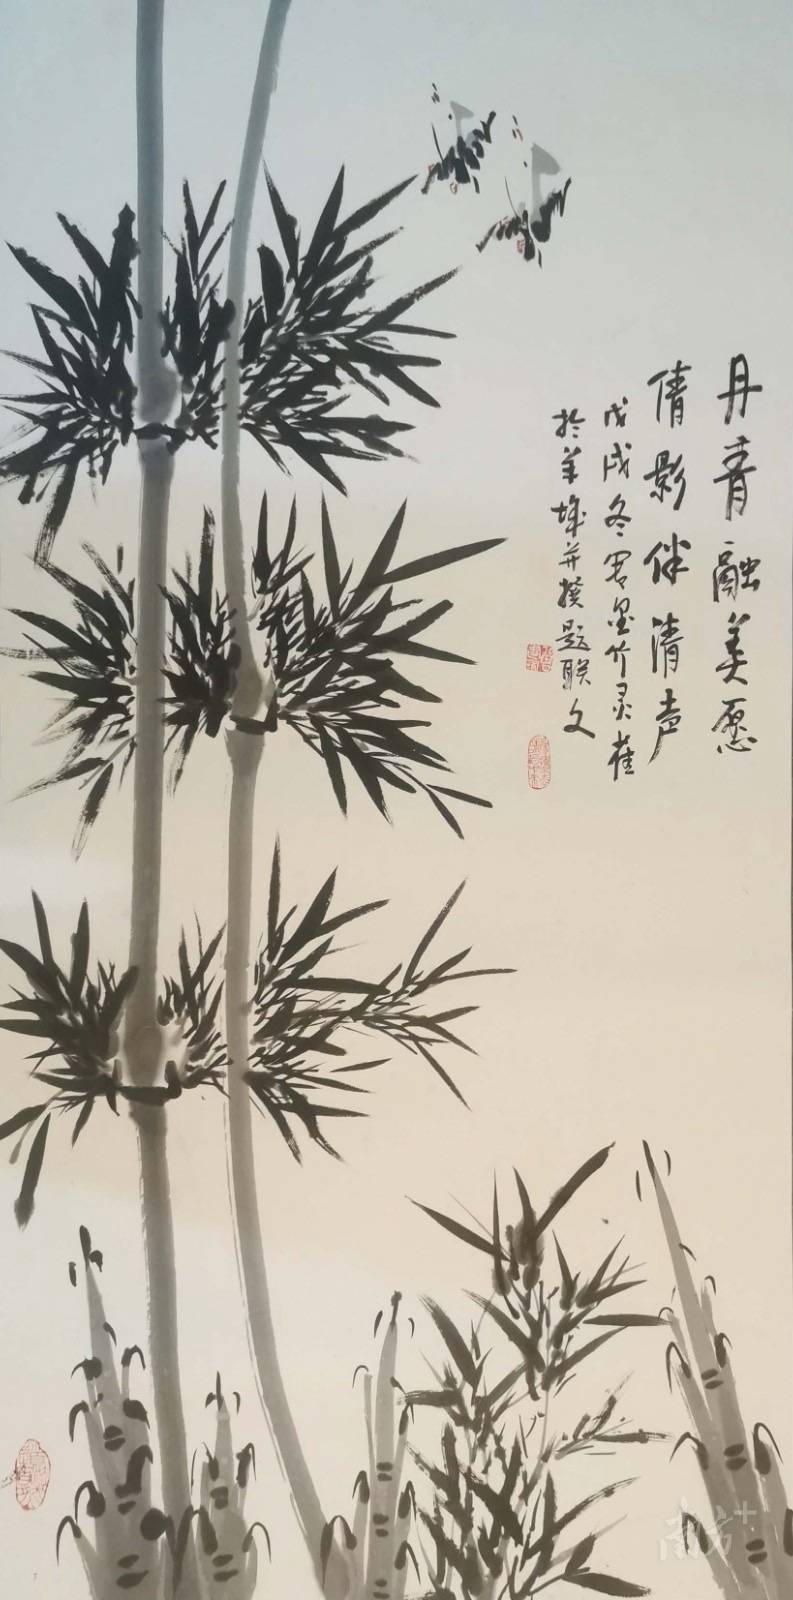 丹青融美愿
倩影伴清声
戊戌冬写墨竹灵雀
於羊城并撰题联文
南方+